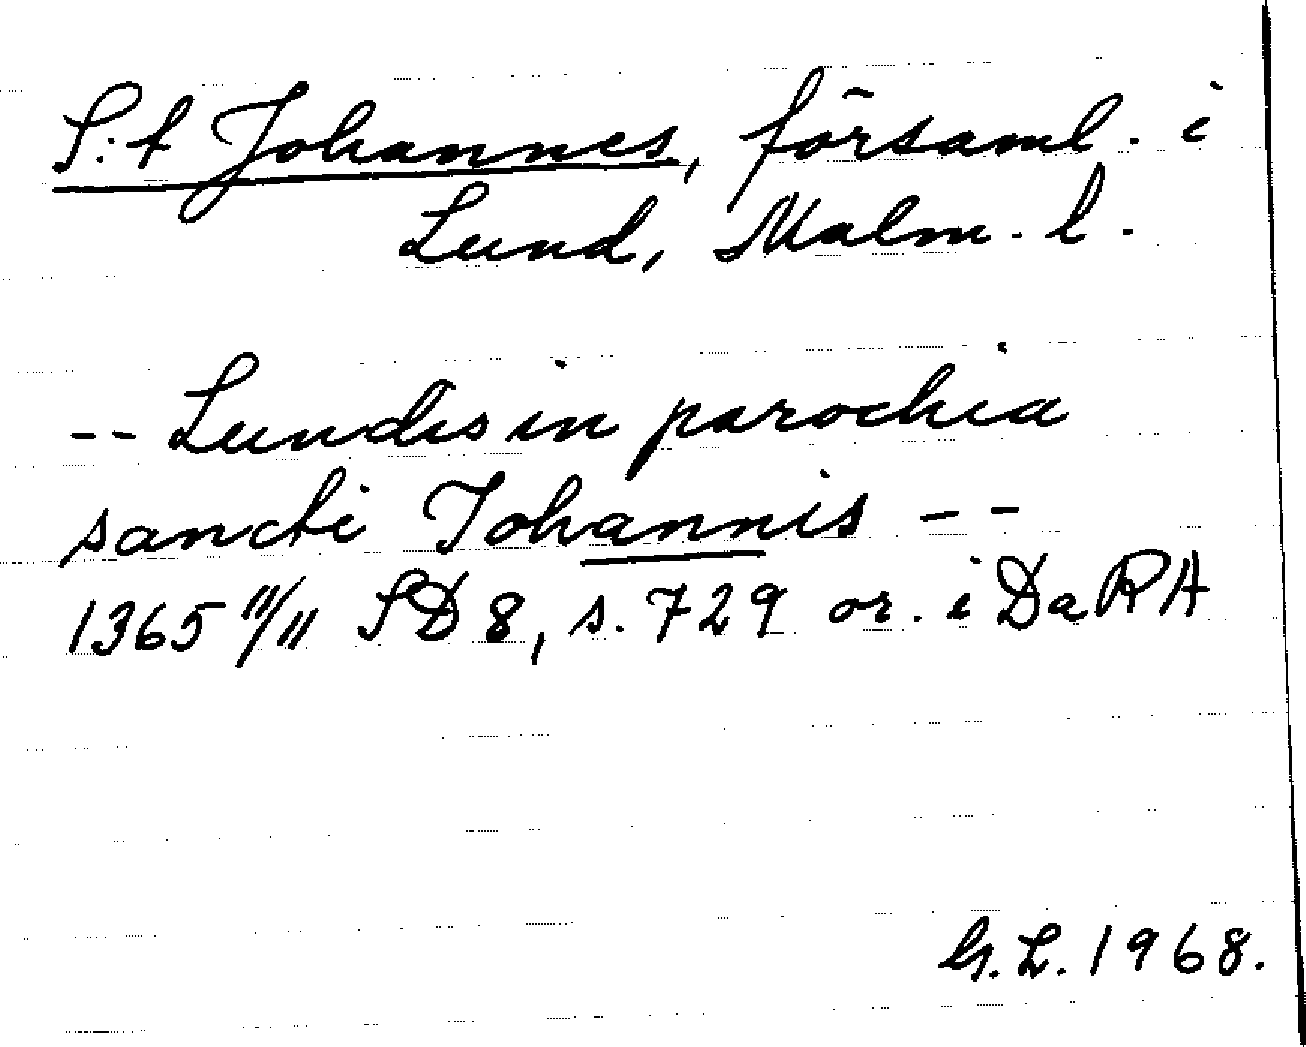 S:t Johannes, församl. i
Lund, Malm. l.
-- Lundis in parochia
sancti Johannis --
1365 11/11 SD 8, s. 729 or. i DaRA
G. L. 1968.